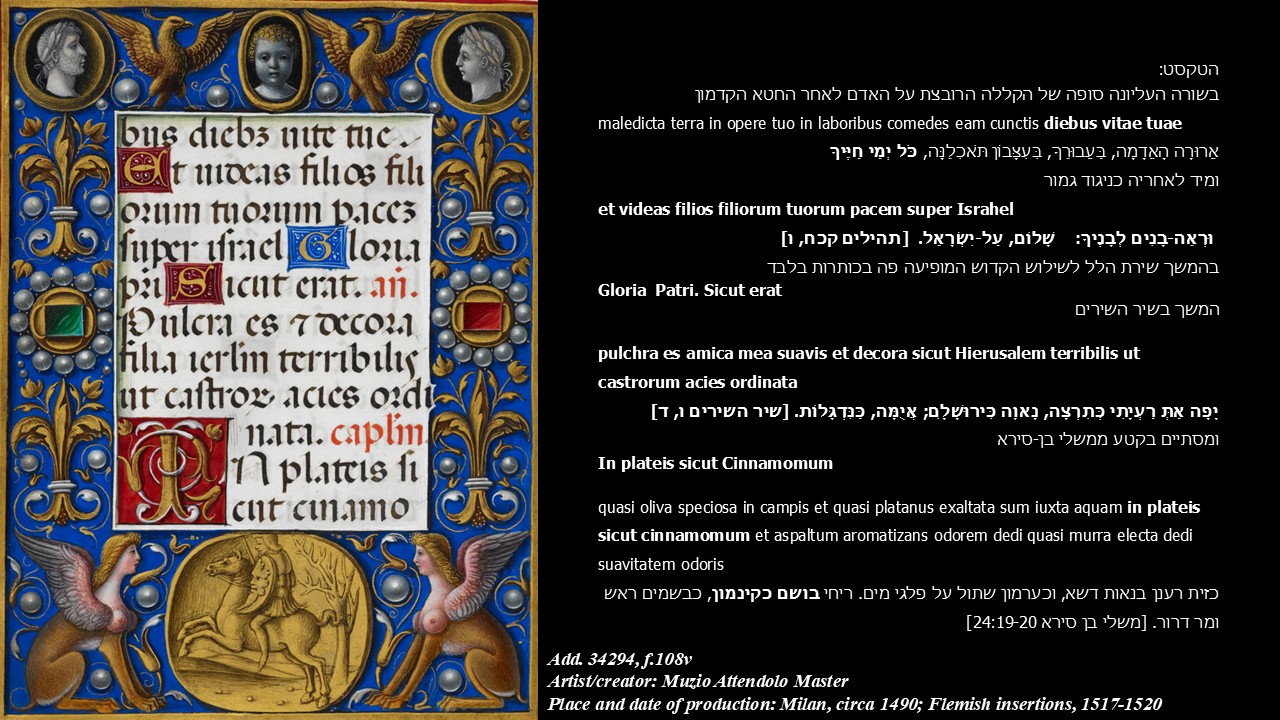 bus dieb3 uite tue.
Et uideas filios fili
orum tuorum pacez
super israel Gloria
pri Sicut erat. an.
Pulcra es ⁊ decora
filia ierlm terribilis
ut castror acies ordi
nata. caplm.
IN plateis si
cut cinamo
הטקסט:
בשורה העליונה סופה של הקללה הרובצת על האדם לאחר החטא הקדמון
maledicta terra in opere tuo in laboribus comedes eam cunctis diebus vitae tuae
אֲרוּרָה הָאֲדָמָה, בַּעֲבוּרֶךָ, בְּעִצָּבוֹן תֹּאכְלֶנָּה, כֹּל יְמֵי חַיֶּיךָ
ומיד לאחריה כניגוד גמור
et videas filios filiorum tuorum pacem super Israhel
וּרְאֵה-בָנִים לְבָנֶיךָ: שָׁלוֹם, עַל-יִשְׂרָאֵל. [תהילים קכח, ו]
בהמשך שירת הלל לשילוש הקדוש המופיעה פה בכותרות בלבד
Gloria Patri. Sicut erat
המשך בשיר השירים
pulchra es amica mea suavis et decora sicut Hierusalem terribilis ut
castrorum acies ordinata
יָפָה אַתְּ רַעְיָתִי כְּתִרְצָה, נָאוָה כִּירוּשָׁלִָם; אֲיֻמָּה, כַּנִּדְגָּלוֹת. [שיר השירים ו, ד]
ומסתיים בקטע ממשלי בן-סירא
In plateis sicut Cinnamomum
quasi oliva speciosa in campis et quasi platanus exaltata sum iuxta aquam in plateis
sicut cinnamomum et aspaltum aromatizans odorem dedi quasi murra electa dedi
suavitatem odoris
כזית רענן בנאות דשא, וכערמון שתול על פלגי מים. ריחי בושם כקינמון, כבשמים ראש
ומר דרור. [משלי בן סירא 24:19-20]
Add. 34294, f.108v
Artist/creator: Muzio Attendolo Master
Place and date of production: Milan, circa 1490; Flemish insertions, 1517-1520